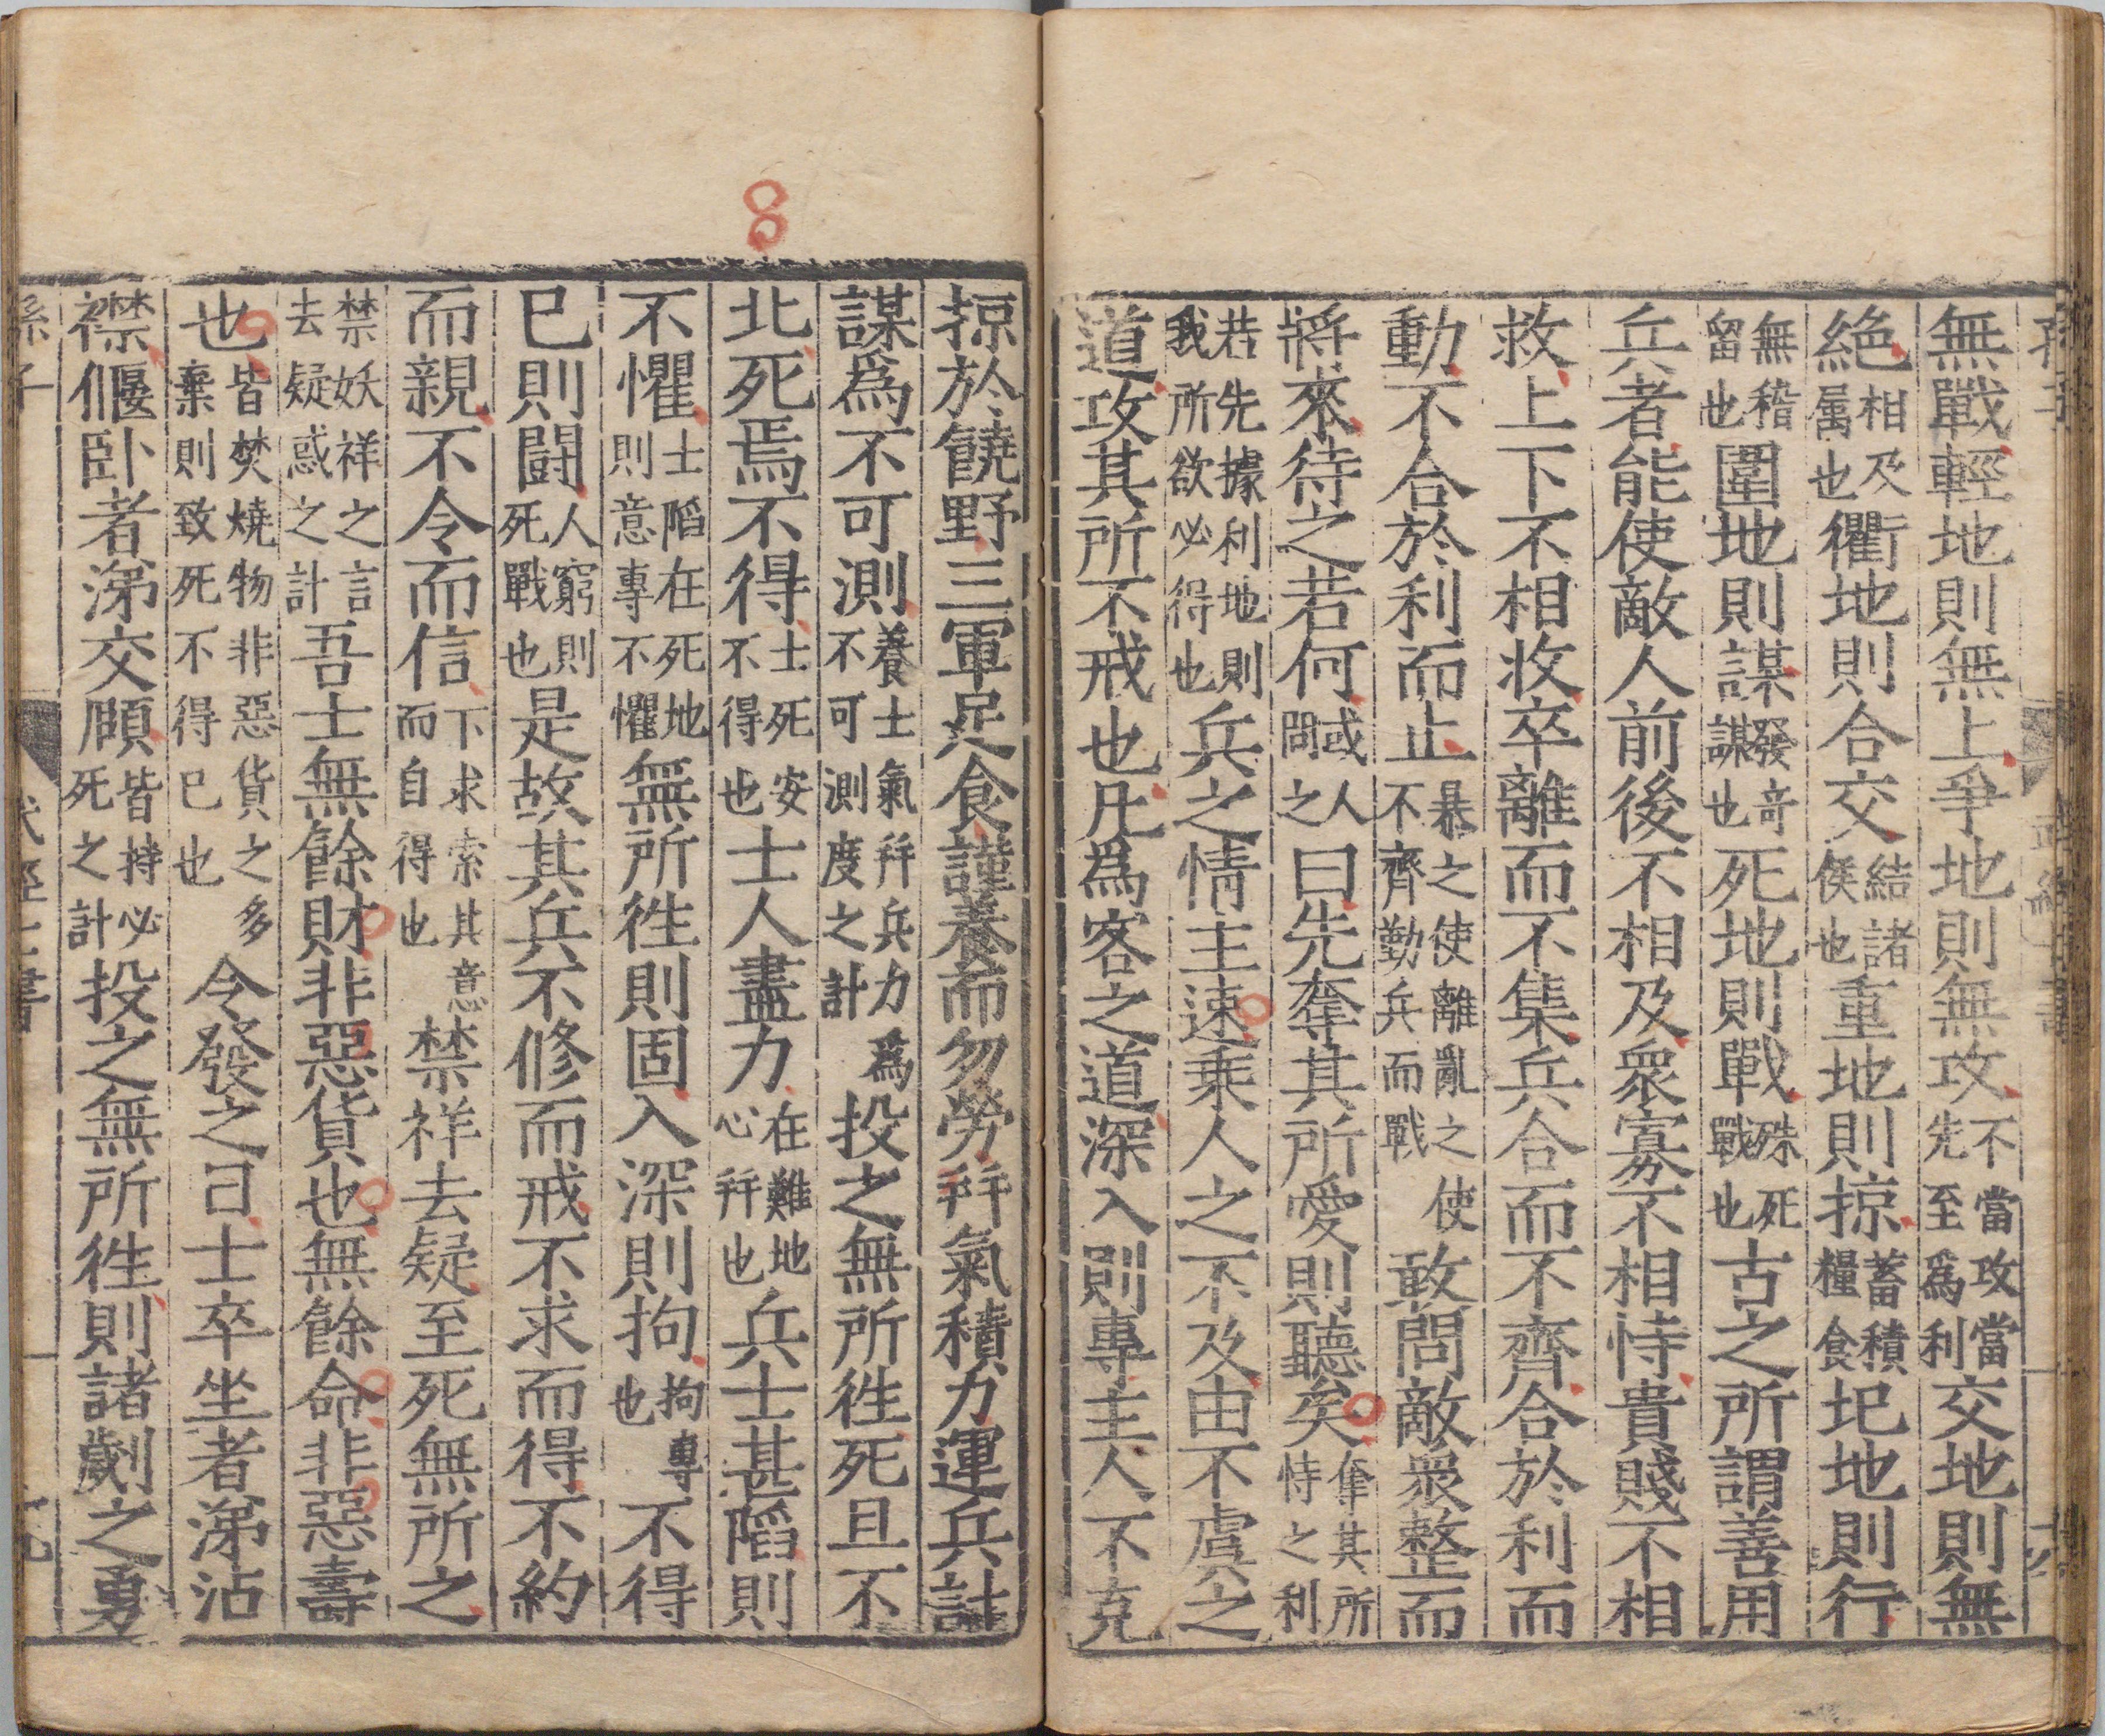 無戰輕地則無上爭地則無攻不當攻當先至爲利交地則無
絶相及屬也衢地則合交結諸侯也重地則掠蓄積糧食圯地則行
無稽留也圍地則謀發奇謀也死地則戰殊死戰也古之所謂善用
兵者能使敵人前後不相及衆寡不相恃貴賤不相
救上下不相收卒離而不集兵合而不齊合於利而
動不合於利而止暴之使離亂之使不齊動兵而戰敢問敵衆整而
將來待之若何或人問之曰先奪其所愛則聽矣奪其所恃之利
若先據利地則我所欲必得也兵之情主速乘人之不及由不虞之
道攻其所不戒也凡爲客之道深入則專主人不克
掠於饒野三軍足食謹養而勿勞幷氣積力運兵計
謀爲不可測養士氣幷兵力爲不可測度之計投之無所徃死且不
北死焉不得士死安不得也士人盡力在難地心幷也兵士甚陷則
不懼士陷在死地則意專不懼無所徃則固入深則拘拘專也不得
已則鬪人窮則死戰也是故其兵不修而戒不求而得不約
而親不令而信下求索其意而自得也禁祥去疑至死無所之
禁妖祥之言去疑惑之計吾士無餘財非惡貨也無餘命非惡壽
也皆焚燒物非惡貨之多棄則致死不得已也令發之日士卒坐者涕沾
襟偃卧者涕交頤皆持必死之計投之無所徃則諸劌之勇
孫子 武經七書 十九